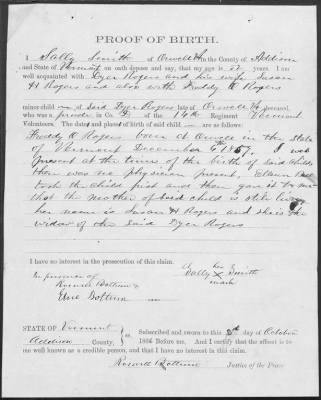 PROOF OF BIRTH.
I Sally Smith of Orwell in the County of Addison
and State of Vermont on oath depose and say, that my age is years. I am
well acquainted with Dyer Rogers and his wife Susan
H Rogers and also with Freddy A Rogers
minor child of Said Dyer Rogers late of Orwell Vt deceased,
who was a private in Co. D of the 14th Regiment Vermont
Volunteers. The date and place of birth of said child are as follows:
Freddy A Rogers born at Orwell in the State
of Vermont December 6th 1857. I was
present at the time of the birth of said Child
there was no physician present,
took the Child first and then gave it to me
that the Mother of said child is still living
her name is Susan H Rogers and she is the
widow of the said Dyer Rogers
I have no interest in the prosecution of this claim.
In presence of
Sally her X mark Smith
Roswell Bottum
Bottum
STATE OF Vermont
Addison County.
ss. Subscribed and sworn to this 3d day of October
1864 Before me. And I certify that the affiant is to
me well known as a credible person, and that I have no interest in this claim.
Roswell Bottum Justice of the Peace